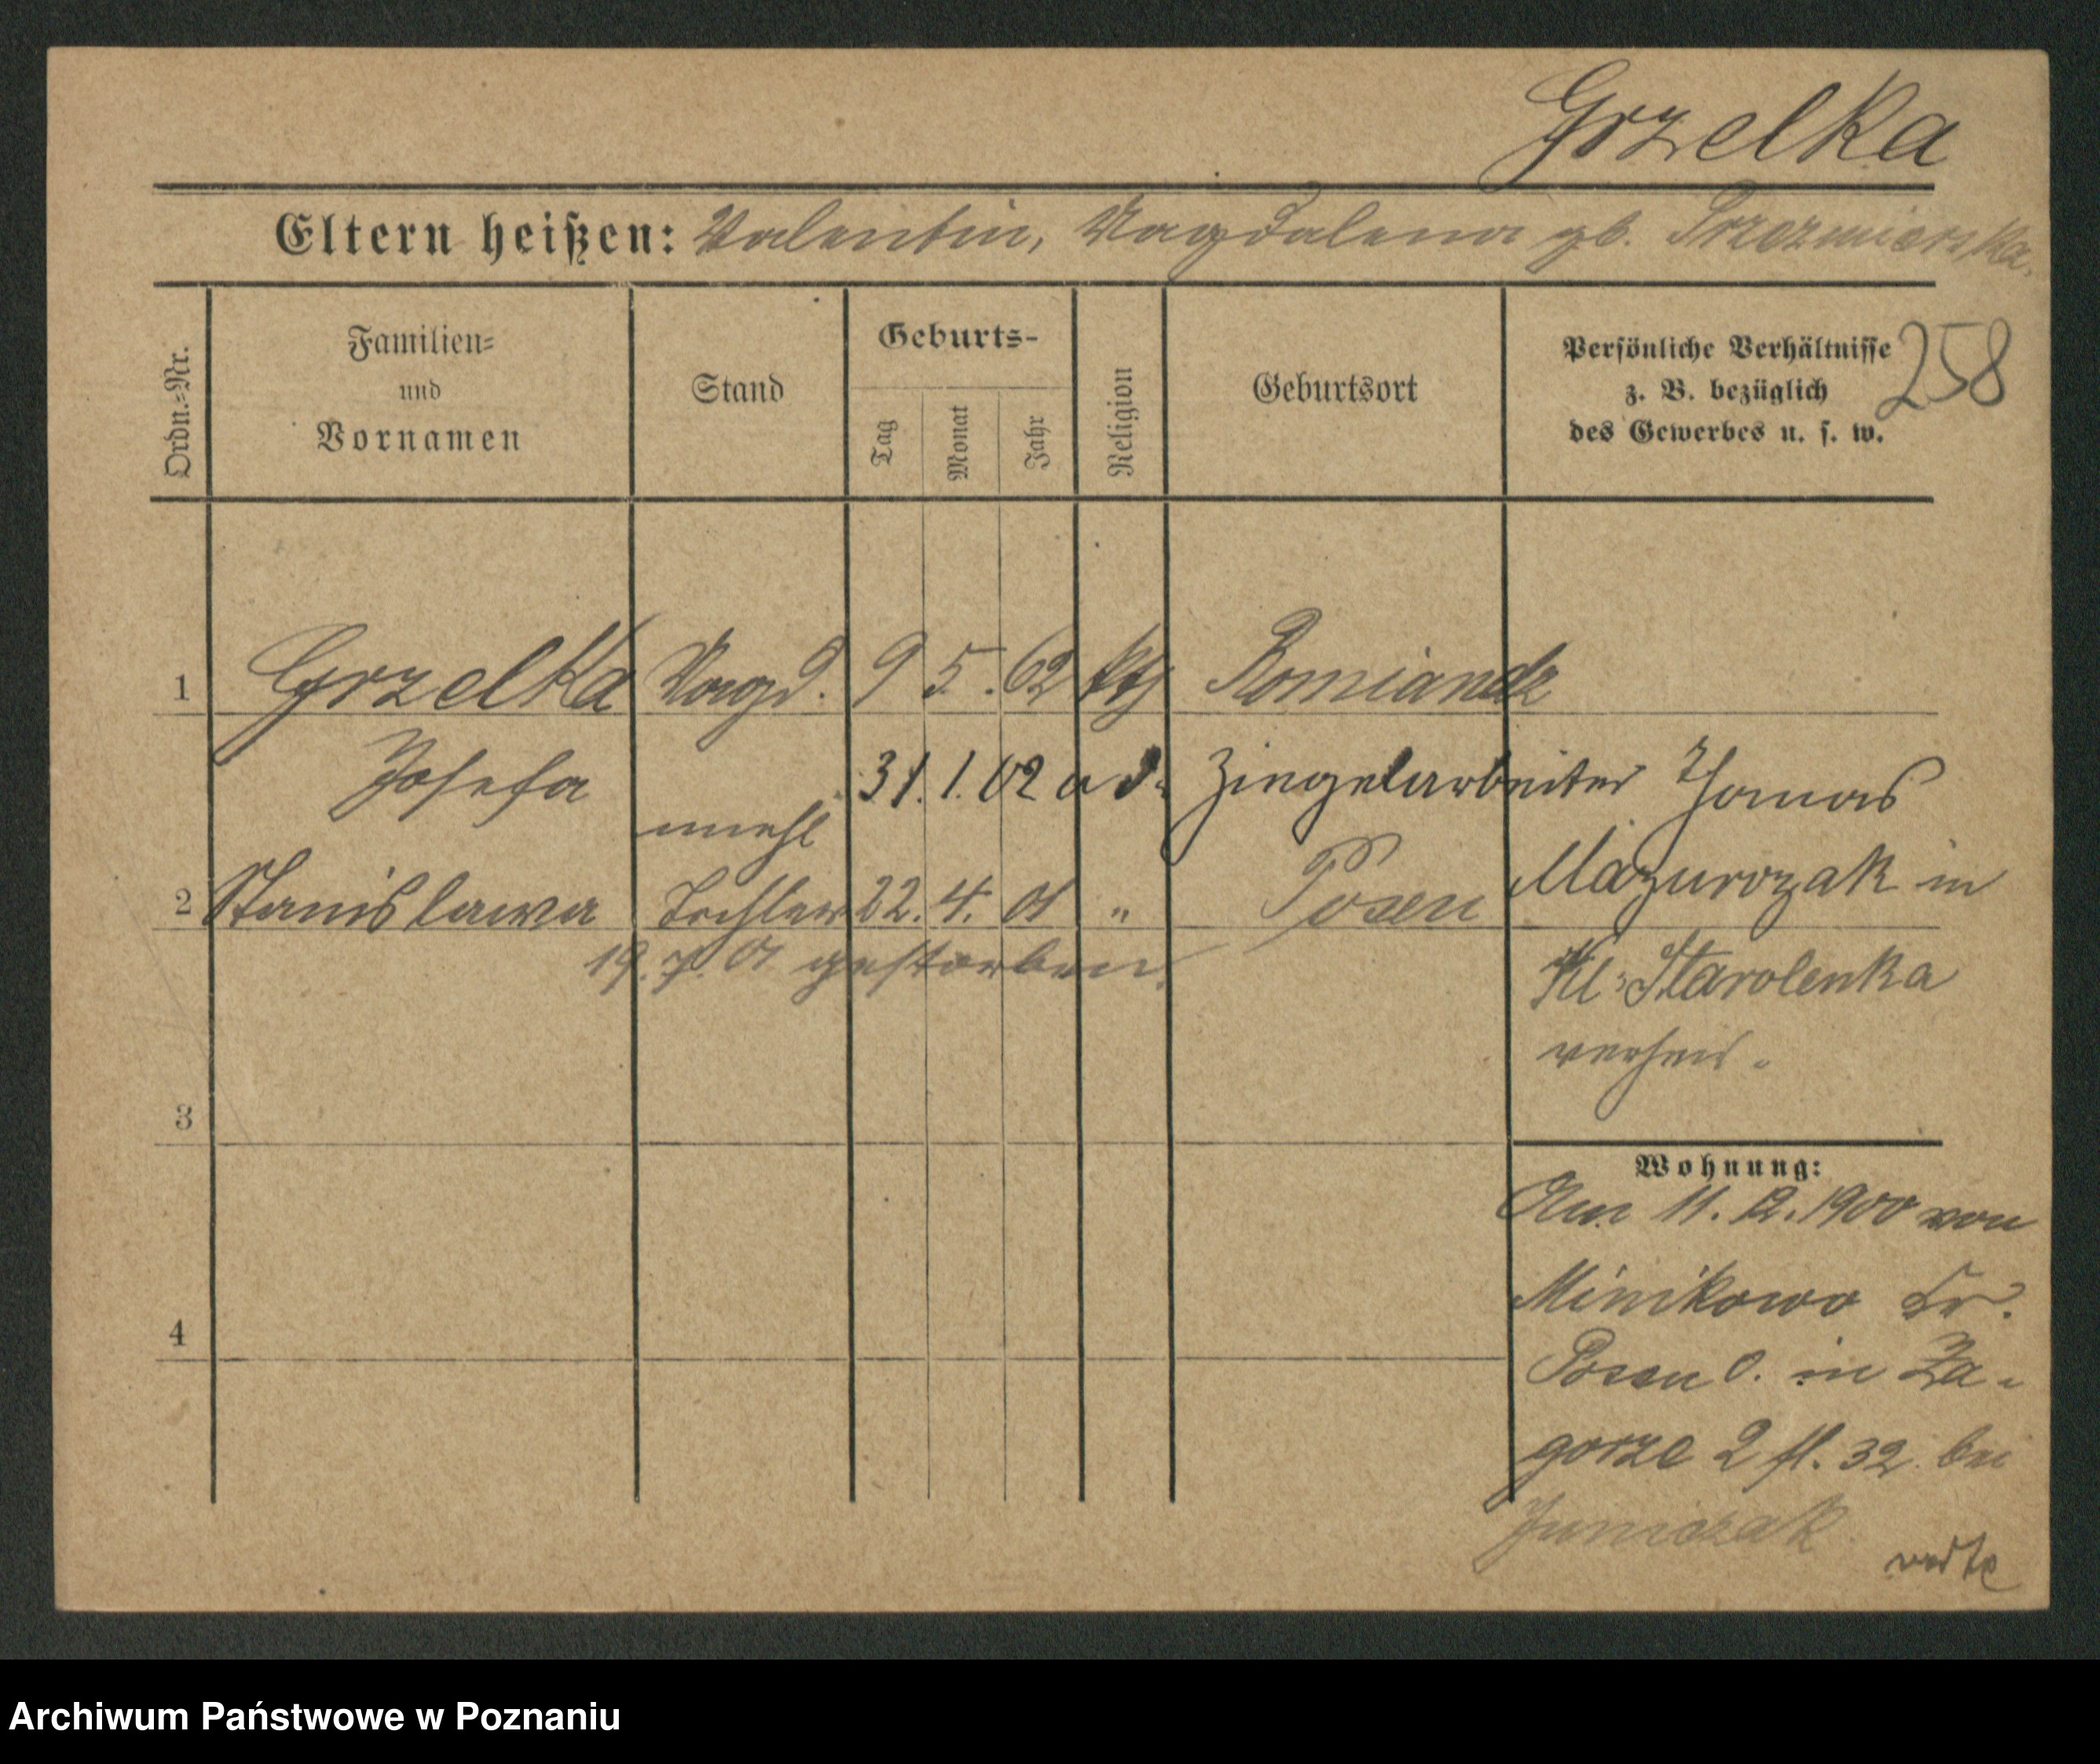 Grzelka
Eltern heißen: Valentin, Magdalena gb. Przezmierska.
Ordn.=Nr.
Familien=
und
Vornamen
Stand
Geburts-
Tag
Monat
Jahr
Religion
Geburtsort
Persönliche Verhältnisse
z. B. bezüglich
des Gewerbes u. s. w.
258
1 Grzelka Magd. 9 5. 62 kth
Josefa 31. 1. 02 a d. Ziegelarbeiter Thomas
unehl
Mazurozak in
2 Stanislawa Tochter 22. 4. 01 " Posen
19. 7. 01 gestorben.
Kl: Starolenka
verheir.
3
Wohnung:
Am 11. 12. 1900 von
Minikowo Kr.
4
Posen O. in Za-
gorze 2 fl. 32. bei